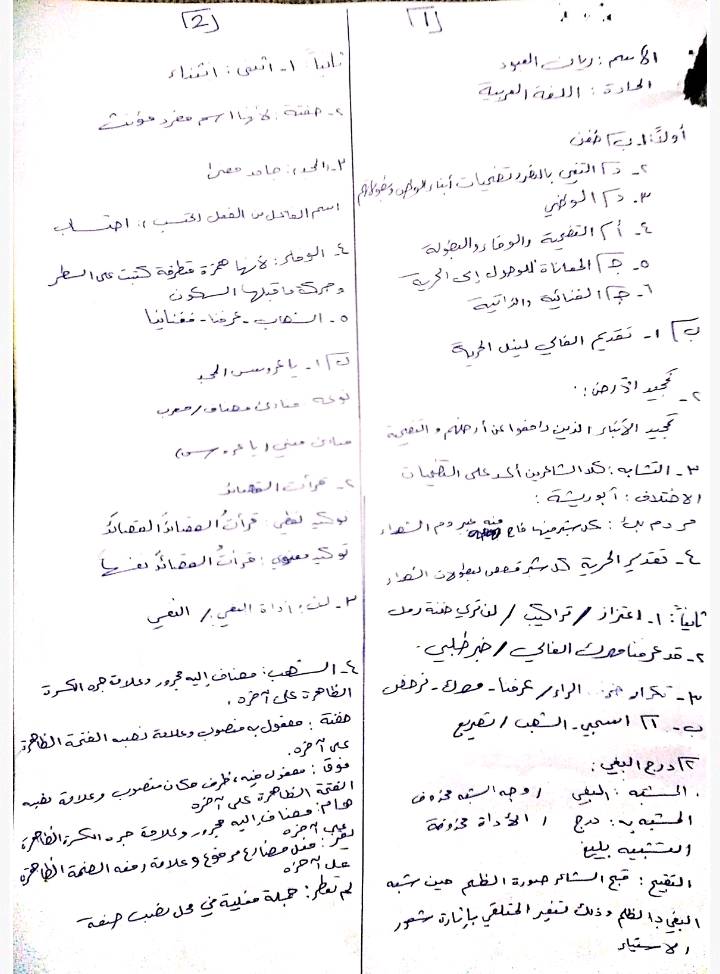 [1]
الاسم: ربان العبود
المادة: اللغة العربية
أولاً: ١- ب) ضفن
٢- د) التغني بالنصر وتضحيات أبناء الوطن وبطولاتهم
٣- د) الوطني
٤- أ) التضحية والوفاء والبطولة
٥- ج) المعاناة للوصول إلى الحرية
٦- ج) الغنائية والذاتية
ب) ١- تقديم الغالي لنيل الحرية
٢- تمجيد الأرض:
تمجيد الأبناء الذين دافعوا عن أرضهم والتضحية
٣- التشابه: كلا الشاعرين أكد على التضحيات
الاختلاف: أبو ريشة:
مردم بك: كل شبر منها فاح منه عبير دم الشهداء
٤- تقدير الحرية كل شبر قصص لبطولات الشهداء
ثانياً: ١- اعتزاز / تراكيب / لن تري حفنة رمل
٢- قد عرفنا مهرك الغالي / خبر طلبي.
٣- تكرار حرف الراء / عرفنا - مهرك - نرخص
ب- ١) اسحبي - الشهب / تصريع
٢) درج البغي:
المشبه: البغي / وجه الشبه محذوف
المشبه به: درج / الأداة محذوفة
التشبيه بليغ
التقبيح: قبح الشاعر صورة الظلم حين شبه
البغي بالظلم وذلك لتنفير المتلقي بإثارة شعور
الاستياء
[2]
ثانياً: ١- انثنى: انثناء
٢- حفنة: لأنها اسم مفرد مؤنث
٣- المجد: جامد
اسم الفاعل من الفعل احتسب: احتساب
٤- الوفاء: لأنها همزة متطرفة كتبت على السطر
وحركة ما قبلها السكون
٥- الشهاب - عرفنا -
١- يا عروس المجد
نوعه منادى مضاف / معرب
منادى مبني (يا عروس)
٢- قرأت القصائد
توكيد لفظي: قرأتُ القصائدَ القصائدَ
توكيد معنوي: قرأتُ القصائدَ نفسها
٣- لن: أداة النفي / النفي
٤- الشهب: مضاف إليه مجرور وعلامة جره الكسرة
الظاهرة على آخره.
حفنة: مفعول به منصوب وعلامة نصبه الفتحة الظاهرة
على آخره.
فوق: مفعول فيه، ظرف مكان منصوب وعلامة نصبه
الفتحة الظاهرة على آخره
هام: مضاف إليه مجرور وعلامة جره الكسرة الظاهرة
على آخره
فعل مضارع مرفوع وعلامة رفعه الضمة الظاهرة
على آخره
لم تعطر: جملة فعلية في محل نصب صفة